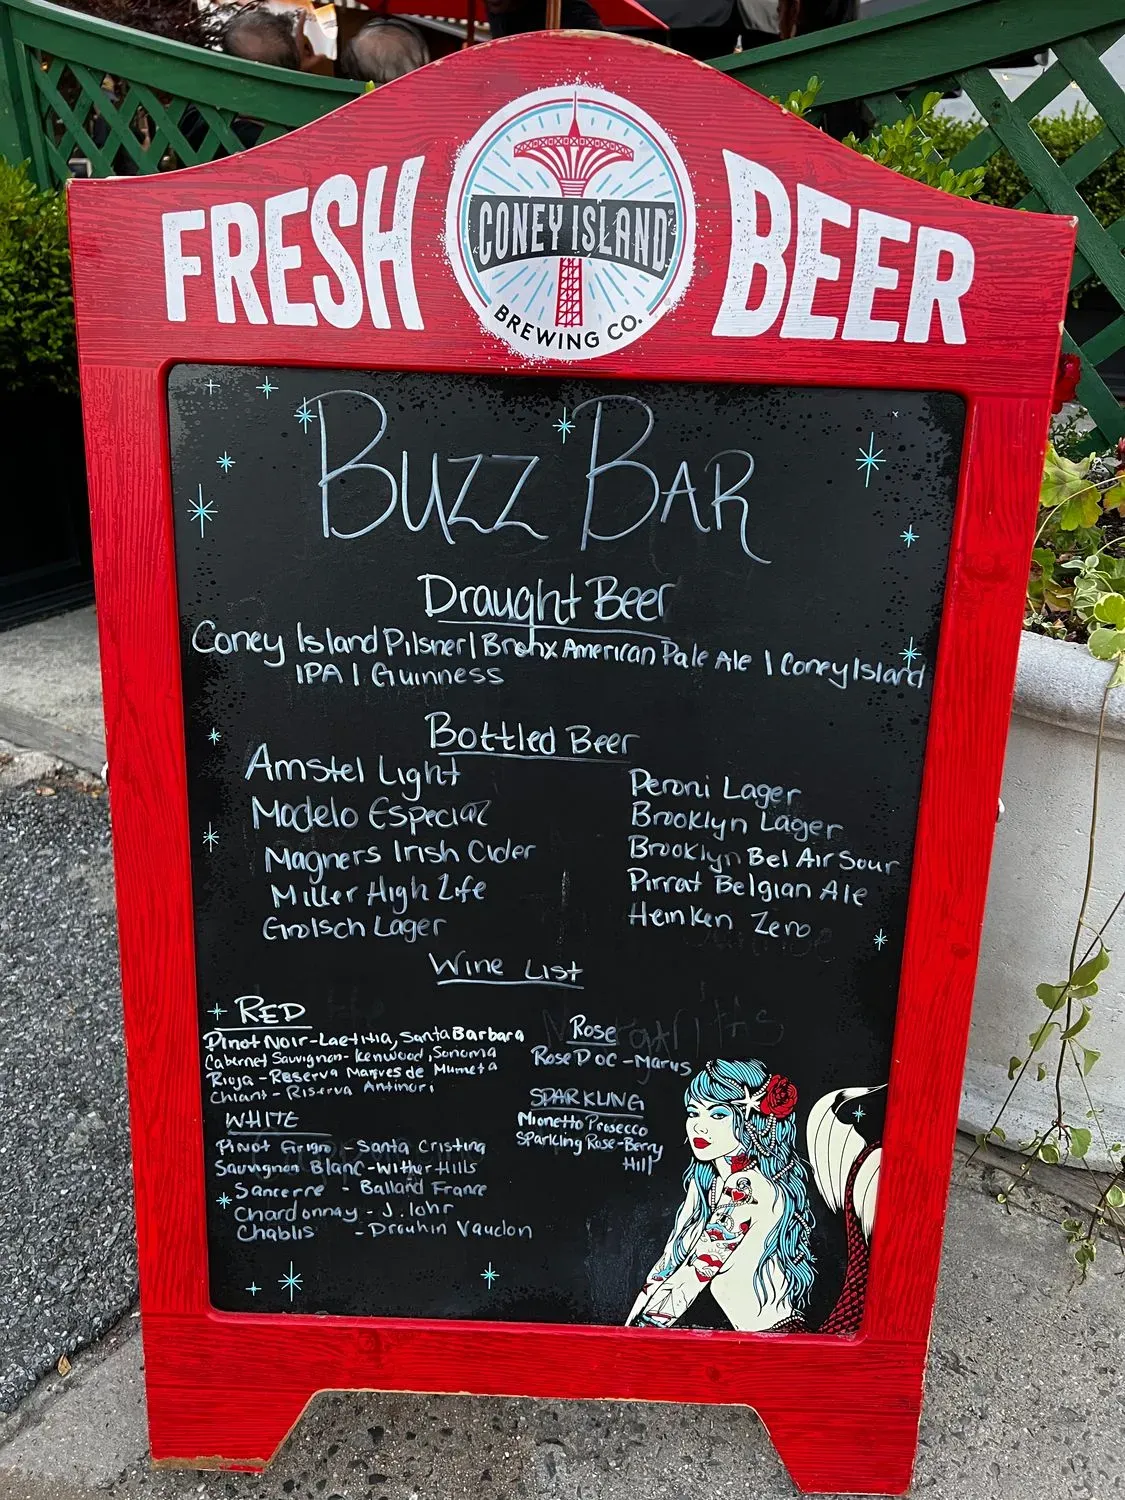 FRESH
CONEY ISLAND
BREWING CO.
BEER
BUZZ BAR
Draught Beer
Coney Island Pilsner | Bronx American Pale Ale | Coney Island
IPA | Guinness
Bottled Beer
Amstel Light
Modelo Especial
Magners Irish Cider
Miller High Life
Grolsch Lager
Peroni Lager
Brooklyn Lager
Brooklyn Bel Air Sour
Pirrat Belgian Ale
Heinken Zero
Wine List
RED
Pinot Noir - Laetitia, Santa Barbara
Cabernet Sauvignon - Kenwood, Sonoma
Rioja - Reserva Marques de Mumeta
Chianti - Riserva Antinori
WHITE
Pinot Grigio - Santa Cristina
Sauvignon Blanc - Wither Hills
Sancerre - Balland France
Chardonnay - J. lohr
Chablis - Drouhin Vaudon
Rose
Rose DOC - Marus
SPARKLING
Mionetto Prosecco
Sparkling Rose - Berry
Hill